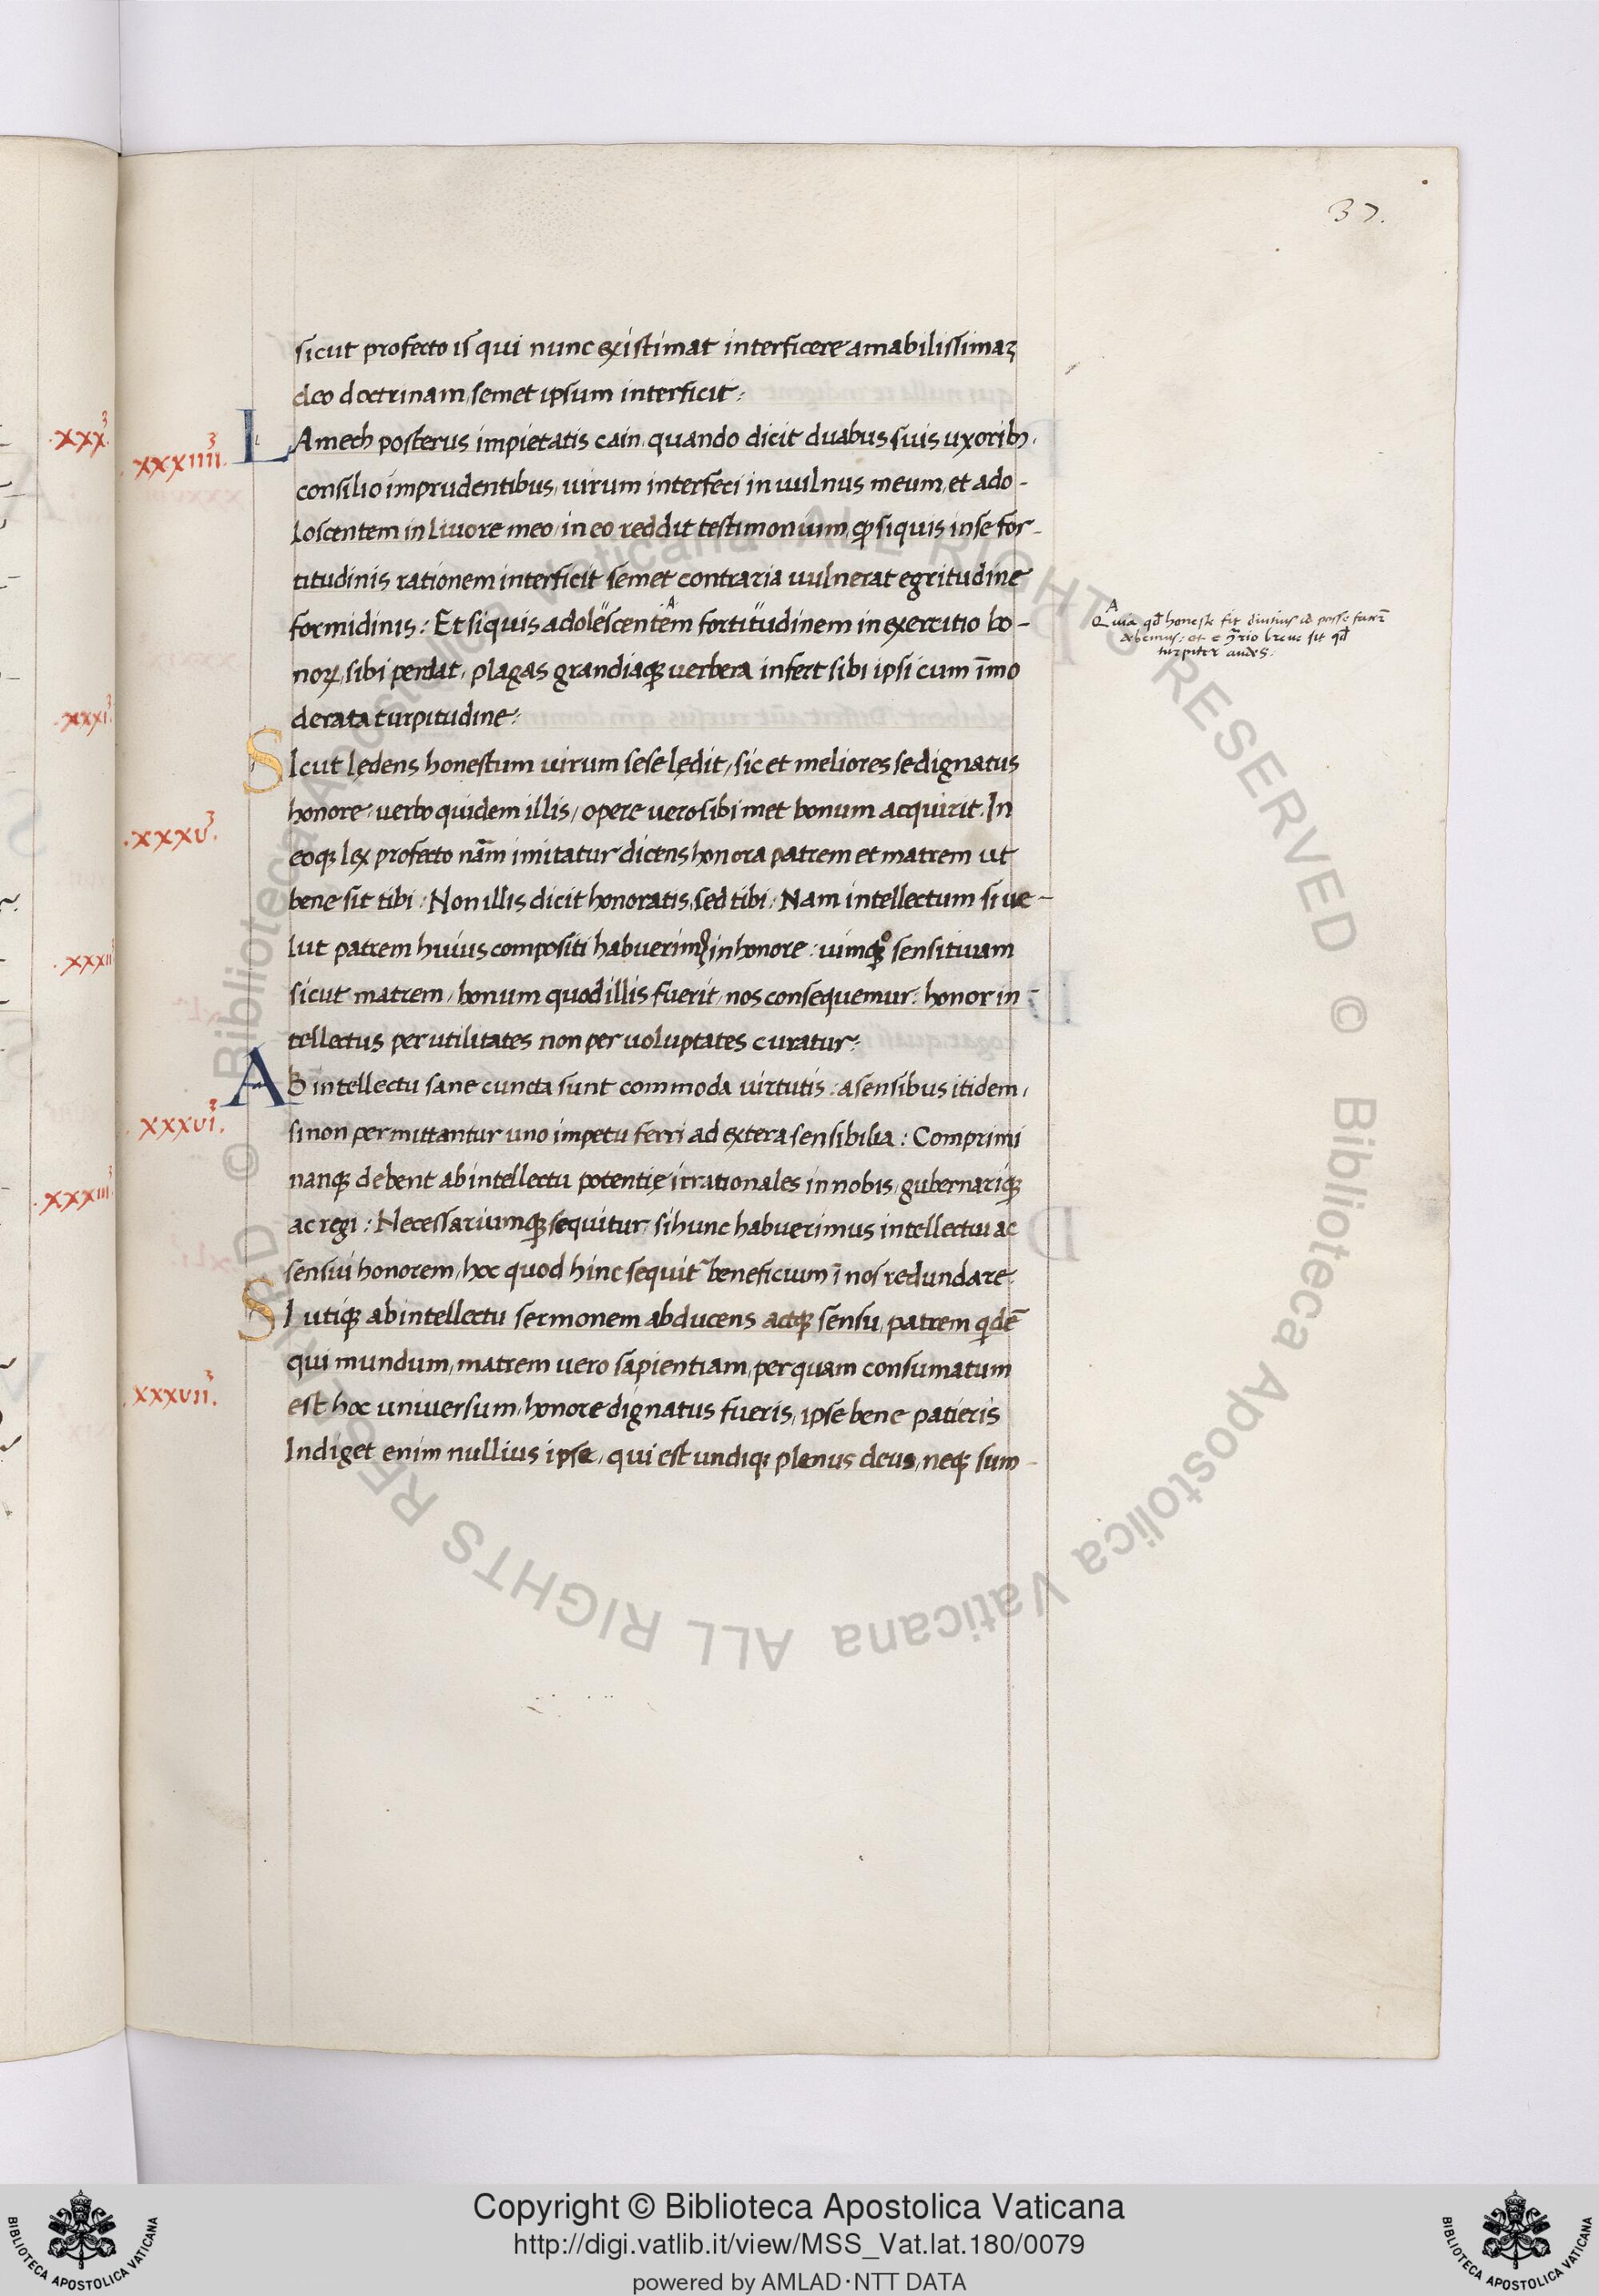 37.
sicut profecto is qui nunc existimat interficere amabilissimaꝫ
deo doctrinam, semet ipsum interficit:
.xxxiiii.
LAmech posterus impietatis cain, quando dicit duabus suis uxoribꝫ,
consilio imprudentibus, uirum interfeci in uulnus meum, et ado-
loscentem in liuore meo, in eo reddit testimonium, ꝙ siquis in se for-
titudinis rationem interficit semet contraria uulnerat egritudine
formidinis: Et siquis adolescentem fortitudinem in exercitio bo-
noꝝ, sibi perdat, plagas grandiaqꝫ uerbera infert sibi ipsi cum īmo
derata turpitudine:
A
Quia qd̄ honeste fit diutius id posse
debemus: et e breue sit qd̄
turpiter audes:
.xxxv.
SIcut lędens honestum uirum sese lędit, sic et meliores se dignatus
honore, uerbo quidem illis, opere uero sibimet bonum acquirit. In
eoqꝫ lex profecto nām imitatur dicens honora patrem et matrem ut
bene sit tibi: Non illis dicit honoratis, sed tibi: Nam intellectum si ue-
lut patrem huius compositi habuerimꝯ in honore: uimqꝫ sensitiuam
sicut matrem, bonum quod illis fuerit, nos consequemur: honor in-
tellectus per utilitates non per uoluptates curatur:
.xxxvi.
AB intellectu sane cuncta sunt commoda uirtutis: a sensibus itidem,
si non permittantur uno impetu ferri ad extera sensibilia: Comprimi
nanqꝫ debent ab intellectu potentię irrationales in nobis, gubernariqꝫ
ac regi: Necessariumqꝫ sequitur, si hunc habuerimus intellectui ac
sensui honorem, hoc quod hinc sequit᷑ beneficium ī nos redundare.
.xxxvii.
SI utiqꝫ ab intellectu sermonem abducens atqꝫ sensu, patrem qͥdē
qui mundum, matrem uero sapientiam, per quam consumatum
est hoc uniuersum, honore dignatus fueris, ipse bene patieris
Indiget enim nullius ipse, qui est undiqꝫ plenus deus, neqꝫ sum-
.xxx.
.xxxi.
.xxxii
.xxxiii
© Biblioteca Apostolica Vaticana ALL RIGHTS RESERVED © Biblioteca Apostolica Vaticana ALL RIGHTS RESERVED
Copyright © Biblioteca Apostolica Vaticana
http://digi.vatlib.it/view/MSS_Vat.lat.180/0079
powered by AMLAD·NTT DATA
BIBLIOTECA APOSTOLICA VATICANA
BIBLIOTECA APOSTOLICA VATICANA